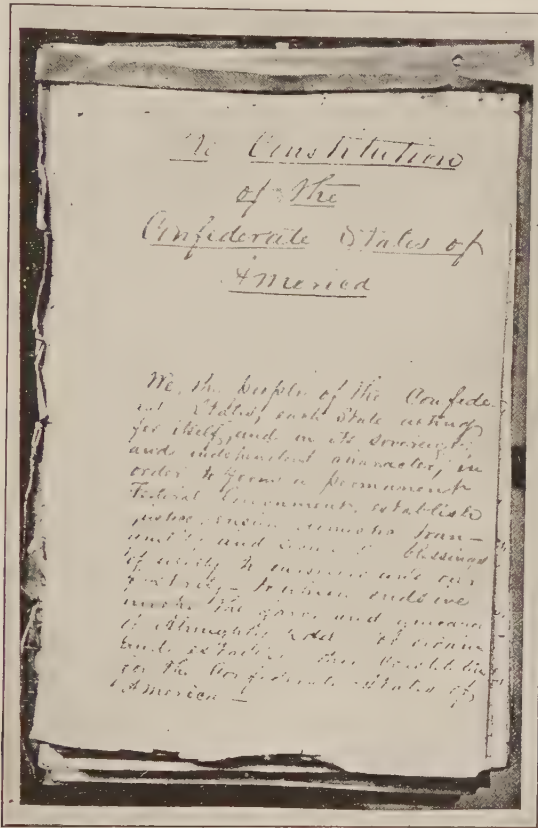 The Constitution
of the
Confederate States of
America
We, the people of the Confede-
rate States, each State acting
for itself, and in its sovereign
and independent character, in
order to form a permanent
Federal Government, establish
justice, ensure domestic tran-
quility and blessings
of liberty to ourselves and our
posterity – to which ends we
invoke the favor and guidance
of Almighty God do ordain
and establish this Constitution
for the Confederate States of
America –